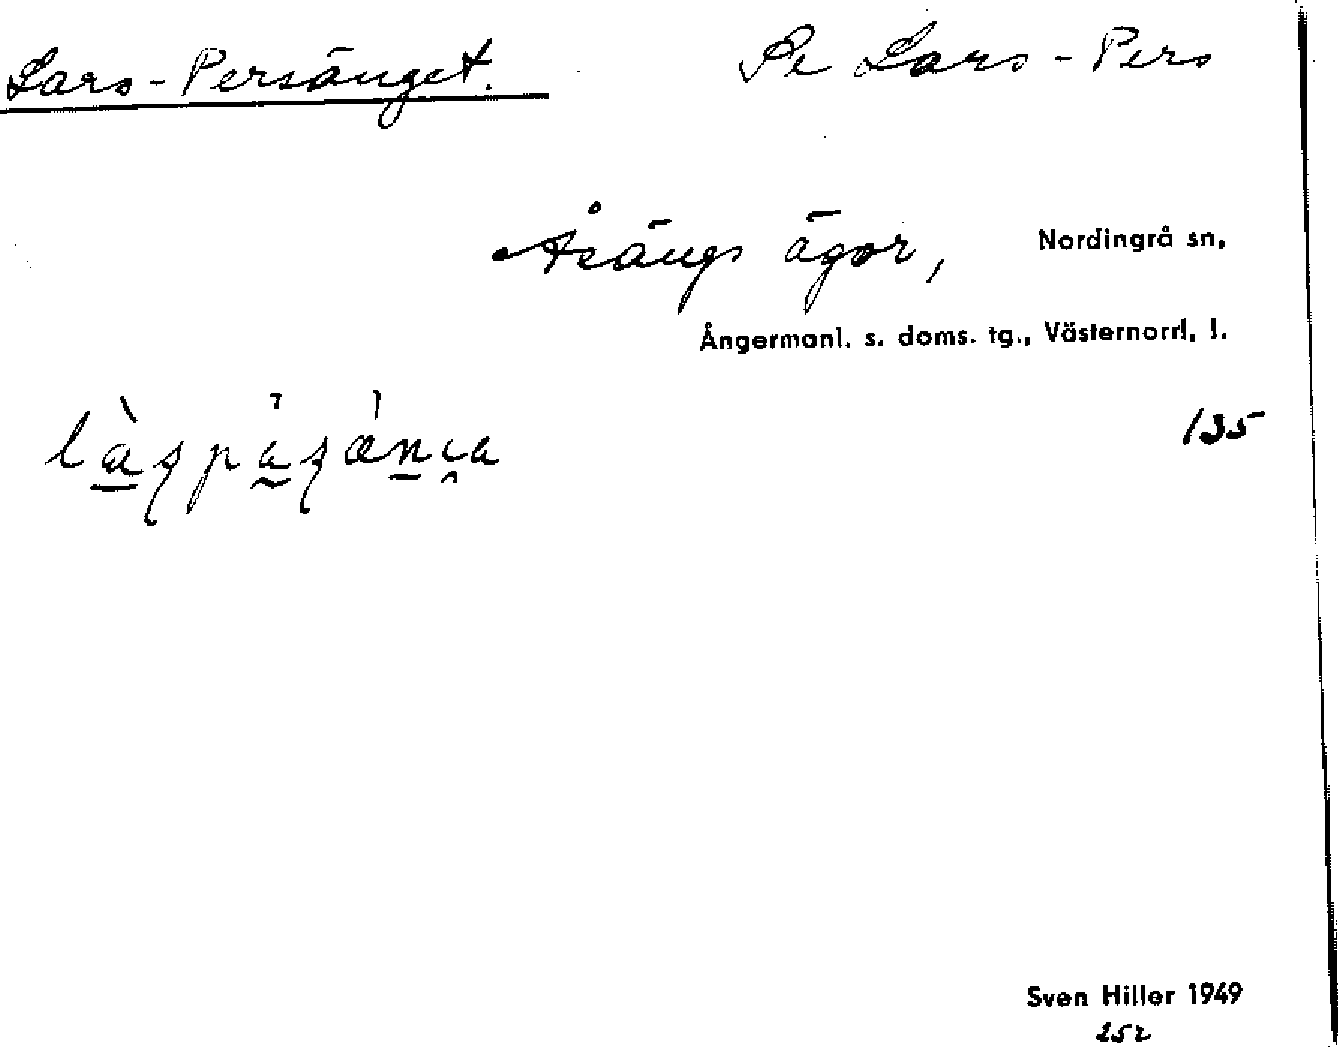 Lars-Persänget. Se Lars-Pers
Åsängs ägor, Nordingrå sn,
Ångermanl. s. doms. tg., Västernorrl. l.
135
Sven Hiller 1949
252